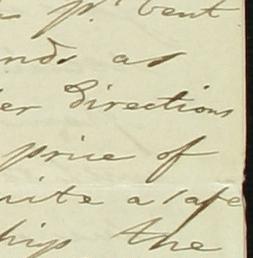 pr. cent
nds as
er directions
price of
uite a safe
hip the